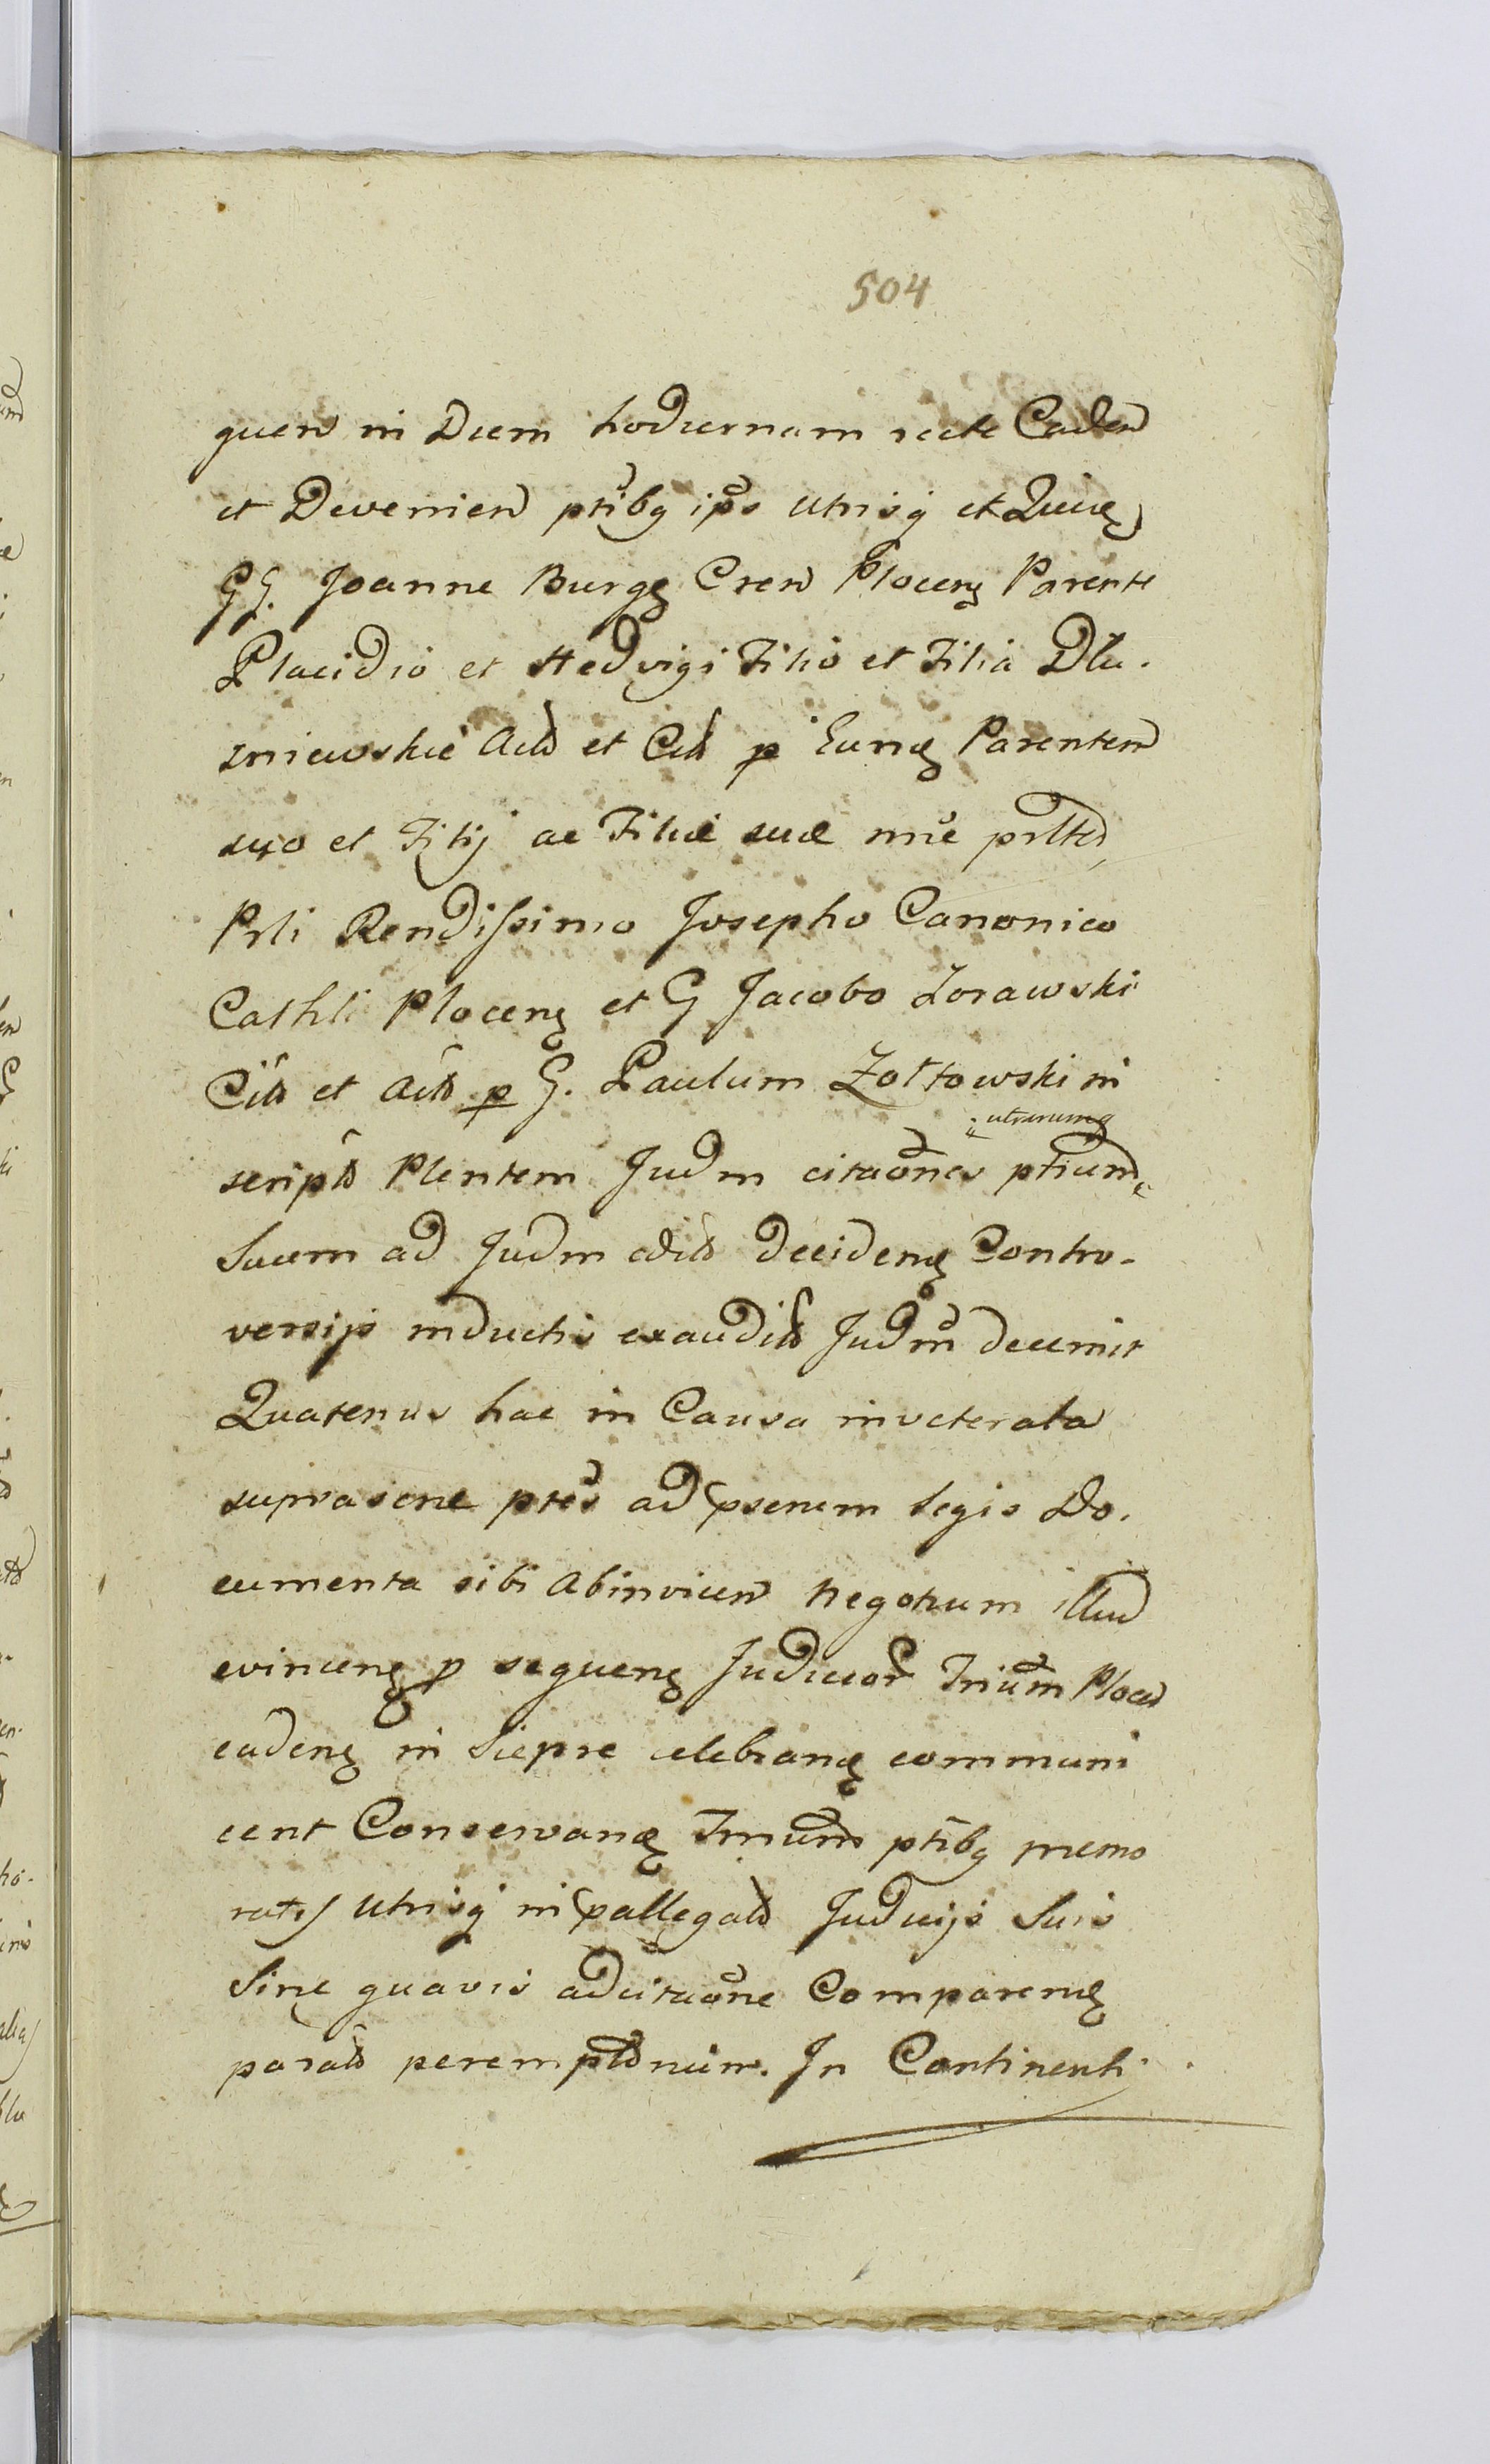 504
quen in Diem hodiernam recte Caden
et Devenien ptibq ips utrisq et Quidę
GG. Joanne Burgę Cren Plocenę Parente
Placidio et Hedvigi Filio et Filia Dłu-
zniewskie Actõ et Cit p Eunę Parentem
suo et Filij ac Filiæ suæ nne
Prli Rendissimo Josepho Canonico
Cathli Plocenę et G Jacobo Zorawski
Citõ et Actõ p G. Paulum Zołtowski in
utrarumq
script Plentem Judm citaones ptium
Sucm ad Judm Decidenę Contro-
versijs inductis exaudit Judm decernit
Quatenus hac in Causa inveterata
supra sene ptes ad psenem legis Do-
cumenta sibi Abinvicem Negotium illud
evincenę p sequenę Judicior Trium Ploen
cadenę in Siepre celebranę communi
cent Conservanę Trium ptibq memo
ratis utrisq in pallegatõ Judicijs Suis
Sine quavis adcitaone Comparenę
paratõ peremptõrium. In Continenti